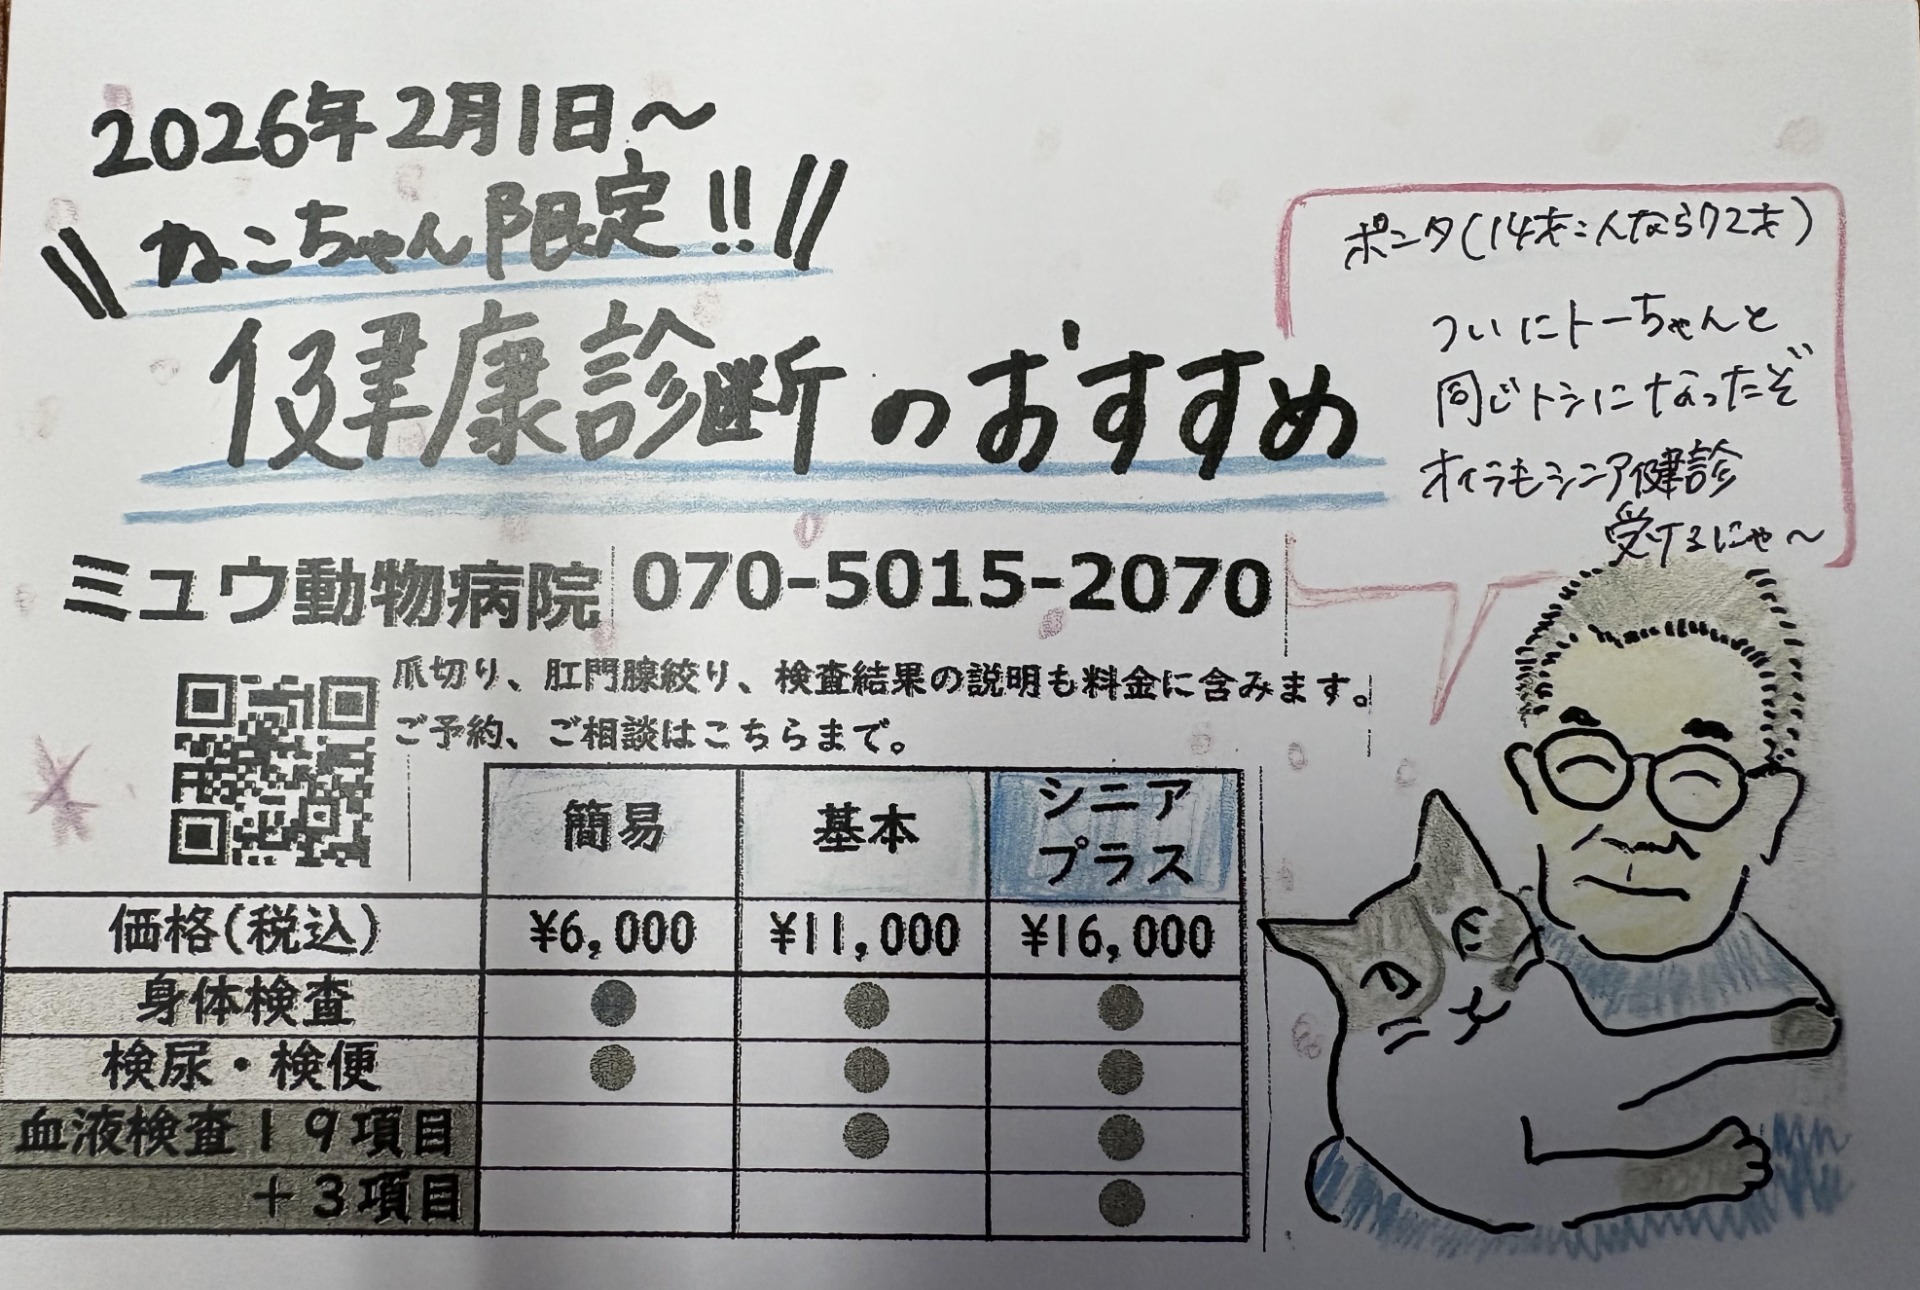 2026年2月1日～
ねこちゃん限定!!
健康診断のおすすめ
ポンタ(14才:人なら72才)
ついにトーちゃんと
同じトシになったぞ
オイラもシニア健診
受けるにゃ～
ミュウ動物病院 070-5015-2070
爪切り、肛門腺絞り、検査結果の説明も料金に含みます。
ご予約、ご相談はこちらまで。
簡易 基本 シニアプラス
価格(税込) ¥6,000 ¥11,000 ¥16,000
身体検査 ● ● ●
検尿・検便 ● ● ●
血液検査19項目 ● ●
+3項目 ●